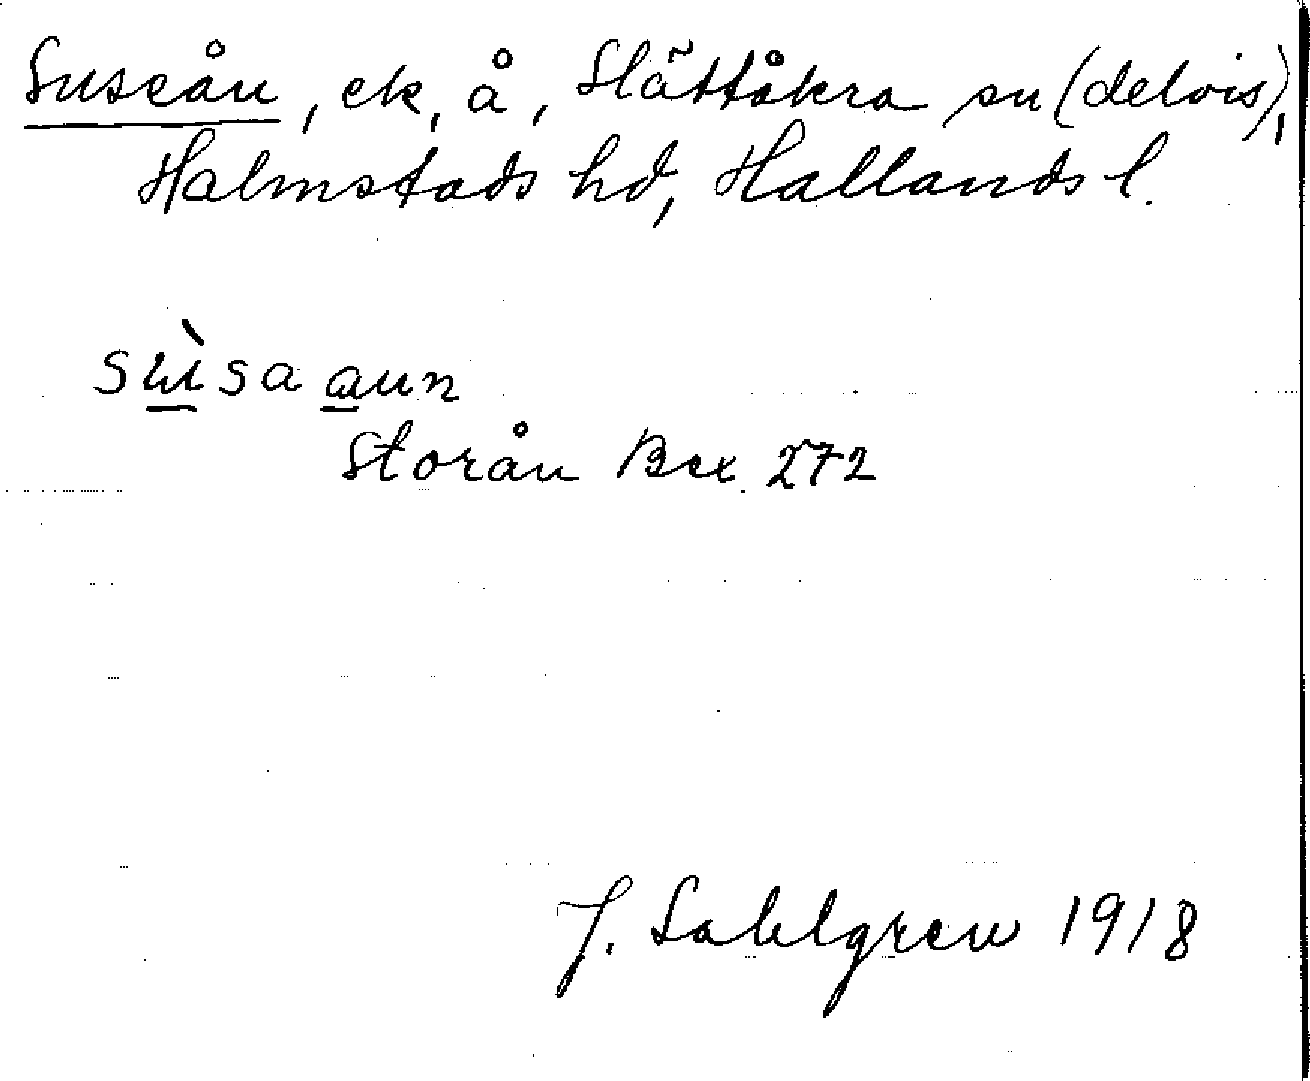 Suseån, ek, å, Slättåkra sn (delvis),
Halmstads hd, Hallands l.
sùsa aun
Storån Bex. 272
J. Sahlgren 1918